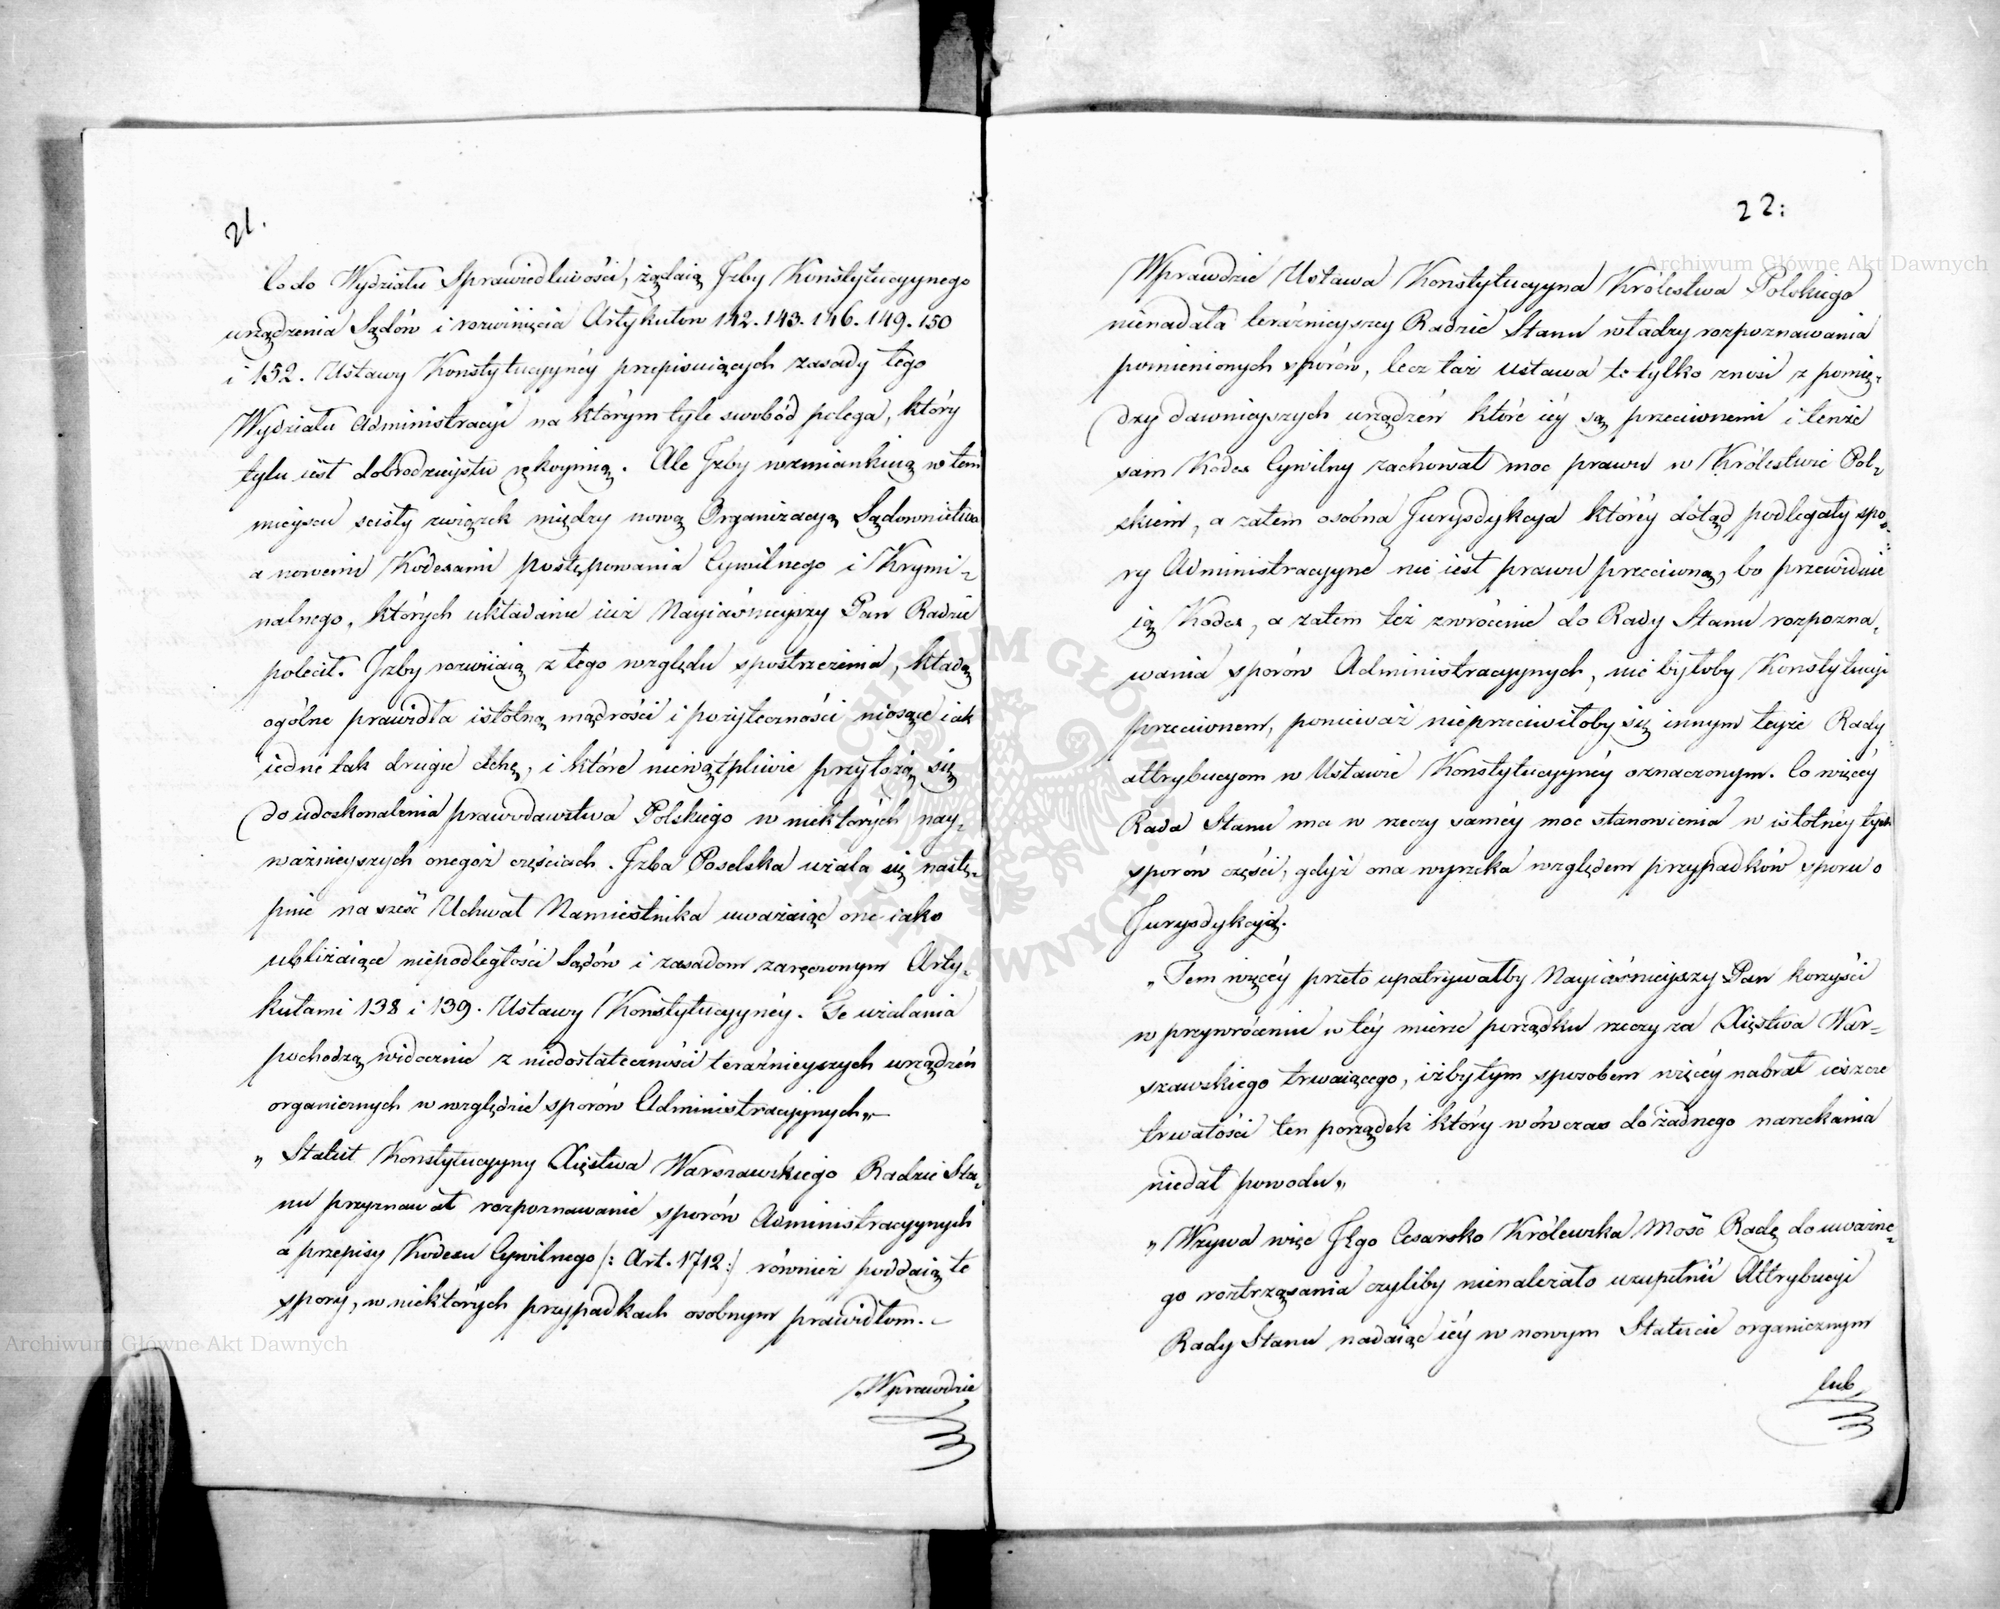 21.
Co do Wydziału Sprawiedliwości, żądaią Jzby Konstytucyynego
urządzenia Sądów i rozwinięcia Artykułow 142. 143. 146. 149. 150
i 152. Ustawy Konstytucyynéy przepisuiących zasady tego
Wydziału Administracyi na którym tyle swobód polega, który
tylu iest dobrodzieystw rękoymią. Ale Jzby wzmiankuią w tem
mieyscu ścisły związek między nową Organizacyą Sądownictwa
a nowemi Kodexami postępowania Cywilnego i Krymi-
nalnego, których układanie iuż Nayiaśnieyszy Pan Radzie
polecił. Jzby rozwiiaią z tego względu spostrzeżenia, kładą
ogólne prawidła istotną mądrości i pożyteczności niosące iak
iedne tak drugie cechę, i które niewątpliwie przyłożą się
do udoskonalenia prawodawstwa Polskiego w niektórych nay-
ważnieyszych onegoż częściach. Jzba Poselska użala się nastę-
pnie na sześć Uchwał Namiestnika uważaiąc one iako
ubliżaiące niepodległości Sądów i zasadom zaręczonym Arty-
kułami 138 i 139. Ustawy Konstytucyynéy. Te użalania
pochodzą widocznie z niedostateczności teraźnieyszych urządzeń
organicznych w względzie sporów Administracyynych„
„ Statut Konstytucyyny Xięstwa Warszawskiego Radzie Sta-
nu przyznawał rozpoznawanie sporów Administracyynych
a przepisy Kodexu Cywilnego /: Art. 1712 :/ również poddaią te
spory, w niektórych przypadkach osobnym prawidłom. -
„Wprawdzie
22:
Wprawdzie Ustawa Konstytucyyna Królestwa Polskiego
nienadała teraźnieyszey Radzie Stanu władzy rozpoznawania
pomienionych sporów, lecz taż ustawa te tylko znosi z pomię-
dzy dawnieyszych urządzeń które iéy są przeciwnemi i tenże
sam Kodex Cywilny zachował moc prawu w Królestwie Pol-
skiem, a zatem osobna Jurysdykcya któréy dotąd podlegały spo-
ry Administracyyne nie iest prawu przeciwną, bo przewiduie
ią Kodex, a zatem też zwrócenie do Rady Stanu rozpozna-
wania sporów Administracyynych, nie byłoby Konstytucyi
przeciwnem, ponieważ nieprzeciwiłoby się innym teyże Rady
attrybucyom w Ustawie Konstytucyynéy oznaczonym. Co więcéy
Rada Stanu ma w rzeczy saméy moc stanowienia w istotnéy tych
sporów części, gdyż ona wyrzeka względem przypadków sporu o
Jurysdykcyą.
„Tem więcéy przeto upatrywałby Nayiaśnieyszy Pan korzyści
w przywróceniu w téy mierze porządku rzeczy za Xięstwa War-
szawskiego trwaiącego, iżby tym sposobem więcéy nabrał ieszcze
trwałości ten porządek który wówczas do żadnego narzekania
niedał powodu„
„Wzywa więc Jego Cesarsko Królewska Mość Radę do uważne-
go roztrząsania czyliby nienależało uzupełnić Attrybucyi
Rady Stanu nadaiąc iéy w nowym Statucie organicznym
lub
Archiwum Główne Akt Dawnych
Archiwum Główne Akt Dawnych
ARCHIWUM GŁÓWNE AKT DAWNYCH